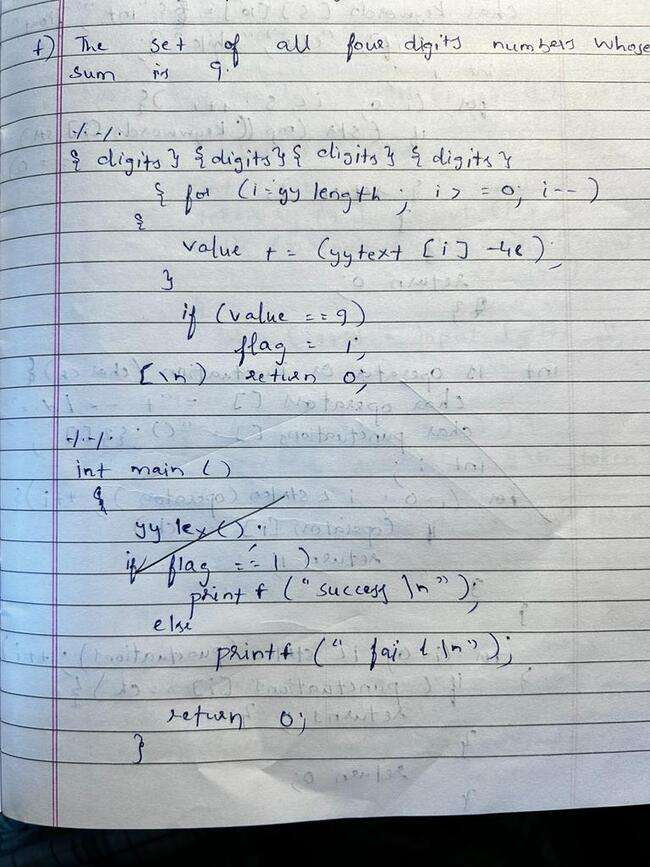 f) The set of all four digits numbers whose
sum is 9.
%%
{digits} {digits} {digits} {digits}
{ for (i=yylength; i>=0; i--)
{
value += (yytext [i] -48);
}
if (value ==9)
flag = 1;
[\n) return 0;
%%
int main ()
{
yylex();
if flag == 1)
printf ("success \n");
else
printf (" fail \n");
return 0;
}